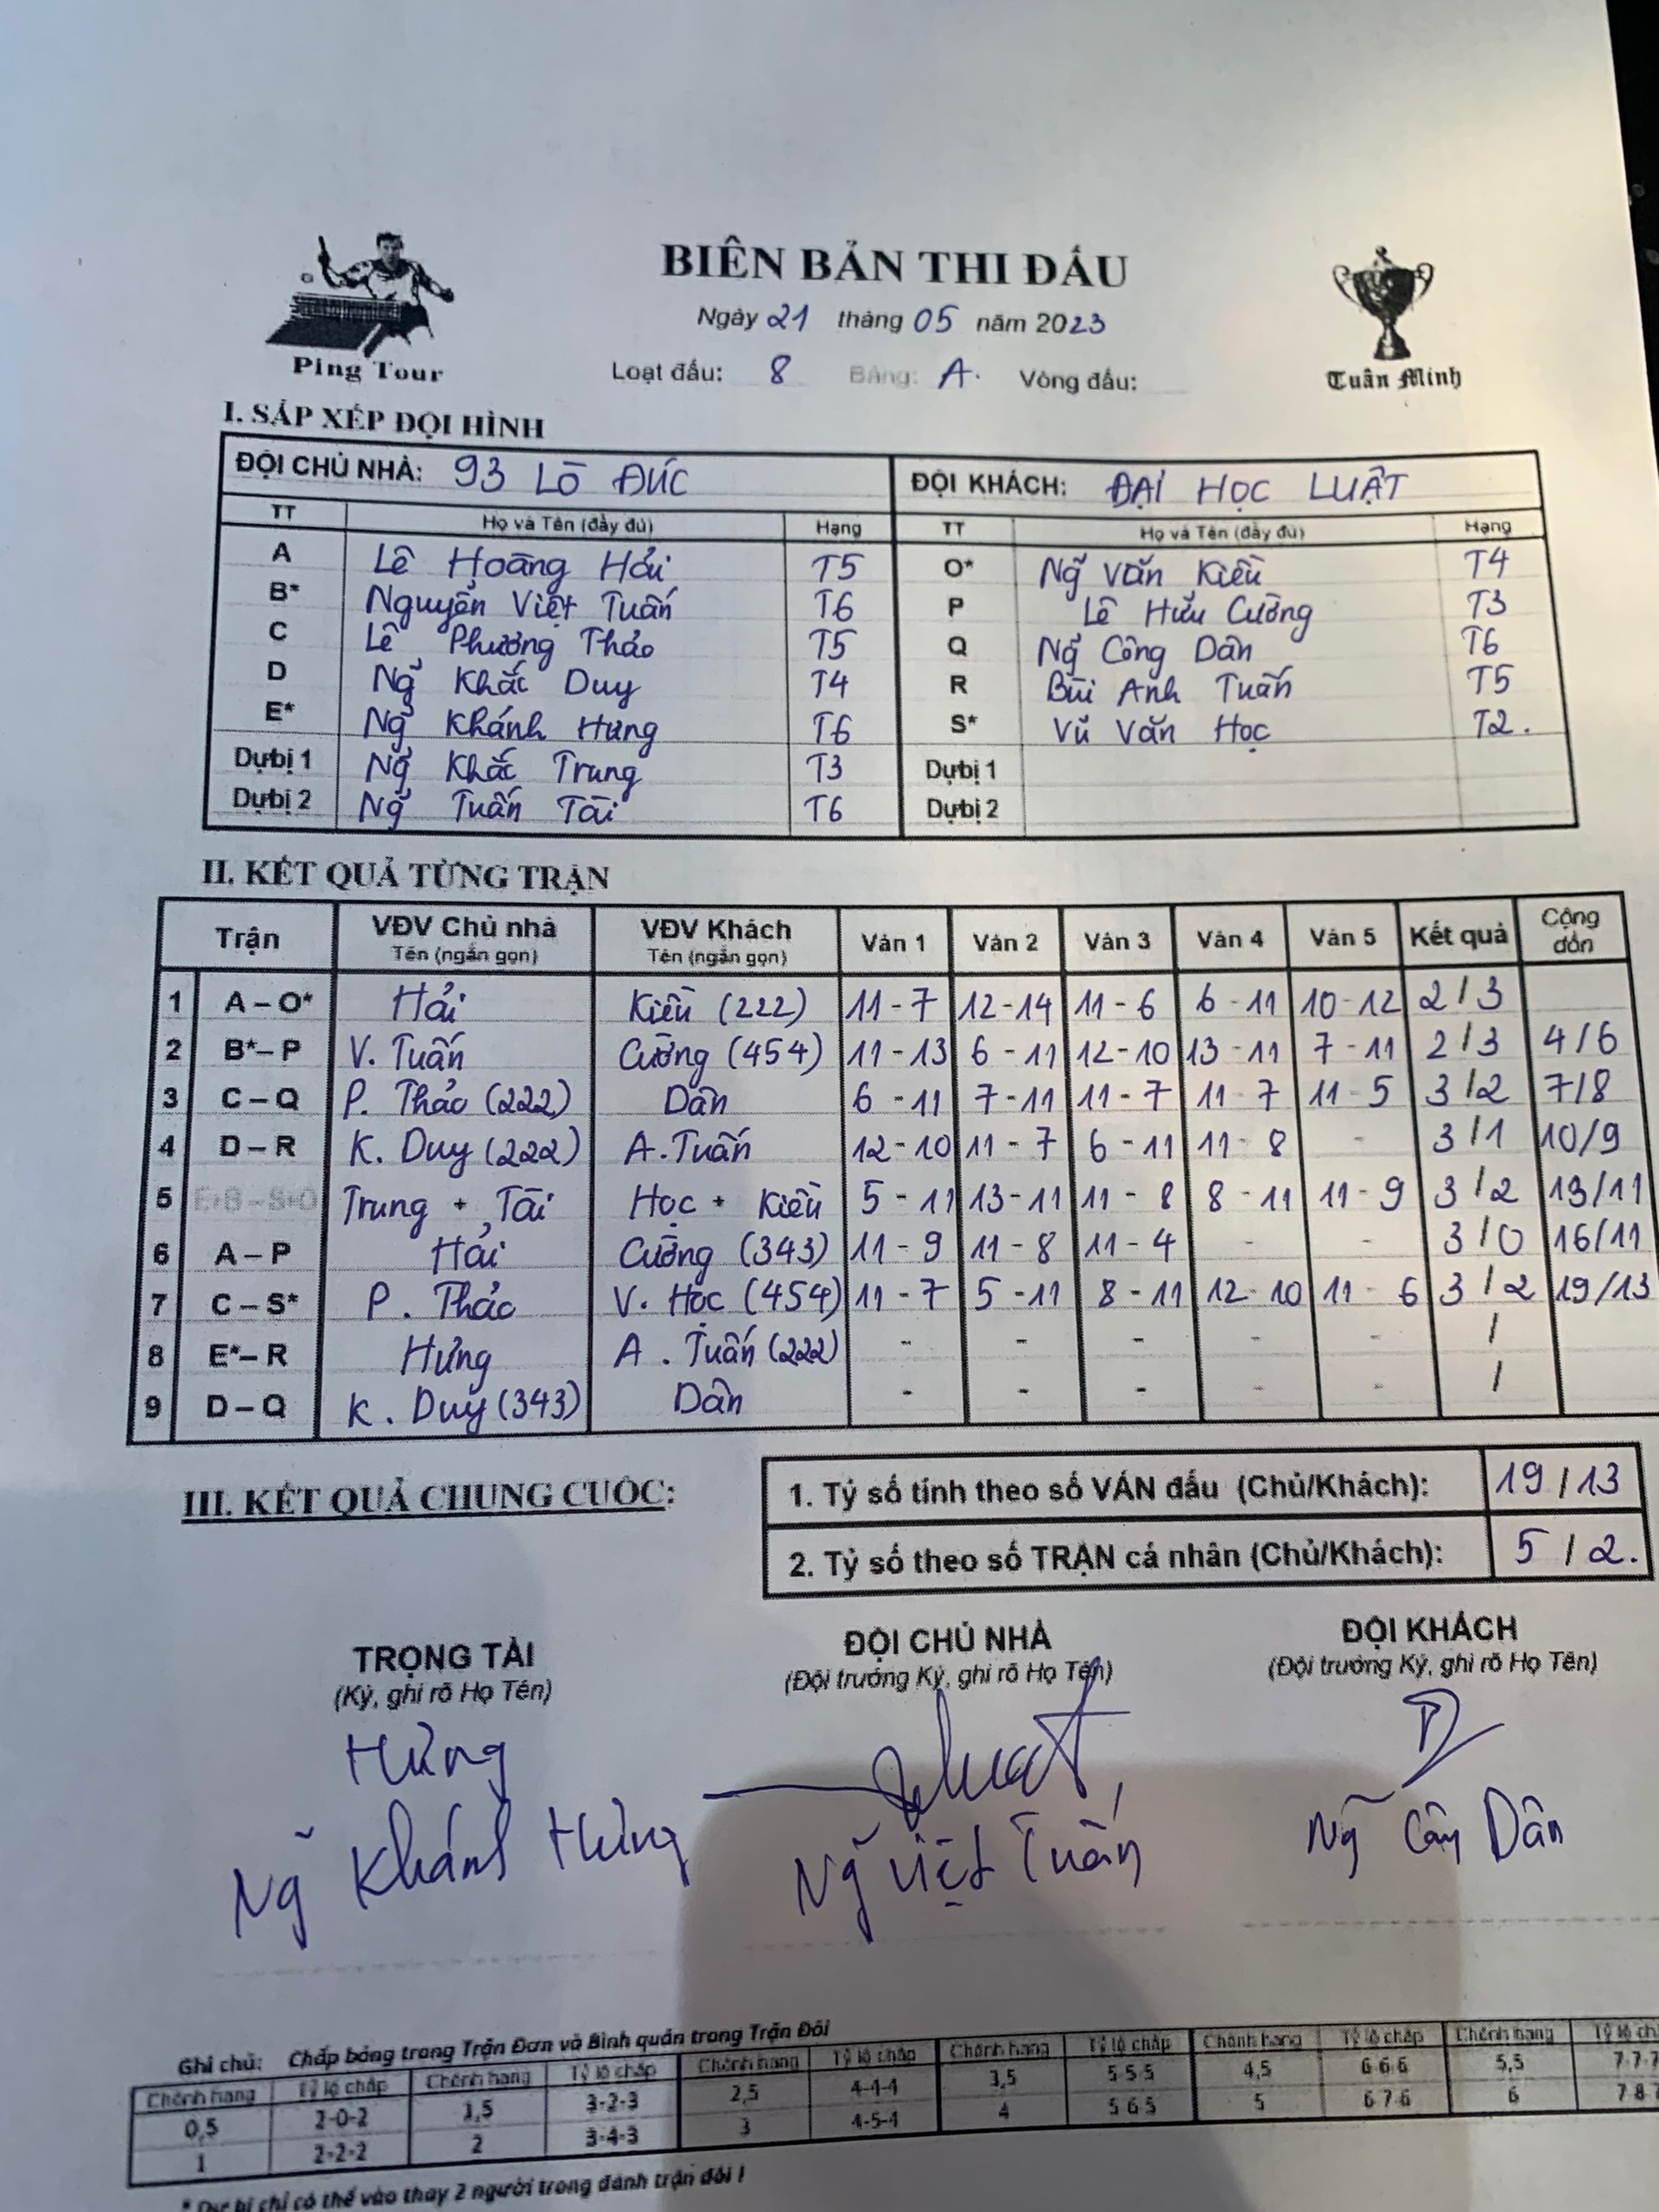 BIÊN BẢN THI ĐẤU
Ngày 21 tháng 05 năm 2023
Ping Tour
Loạt đấu: 8 Bảng: A. Vòng đấu:
Tuấn Minh
I. SẮP XẾP ĐỘI HÌNH
ĐỘI CHỦ NHÀ: 93 LÒ ĐÚC ĐỘI KHÁCH: ĐẠI HỌC LUẬT
TT Họ và Tên (đầy đủ) Hạng TT Họ và Tên (đầy đủ) Hạng
A Lê Hoàng Hải T5 O* Ng̃ Văn Kiều T4
B* Nguyễn Việt Tuấn T6 P Lê Hữu Cường T3
C Lê Phương Thảo T5 Q Ng̃ Công Dân T6
D Ng̃ Khắc Duy T4 R Bùi Anh Tuấn T5
E* Ng̃ Khánh Hưng T6 S* Vũ Văn Học T2.
Dự bị 1 Ng̃ Khắc Trung T3 Dự bị 1
Dự bị 2 Ng̃ Tuấn Tài T6 Dự bị 2
II. KẾT QUẢ TỪNG TRẬN
Trận VĐV Chủ nhà VĐV Khách Ván 1 Ván 2 Ván 3 Ván 4 Ván 5 Kết quả Cộng dồn
Tên (ngắn gọn) Tên (ngắn gọn)
1 A – O* Hải Kiều (222) 11 - 7 12 - 14 11 - 6 6 - 11 10 - 12 2 / 3
2 B* – P V. Tuấn Cường (454) 11 - 13 6 - 11 12 - 10 13 - 11 7 - 11 2 / 3 4/6
3 C – Q P. Thảo (222) Dân 6 - 11 7 - 11 11 - 7 11 - 7 11 - 5 3 / 2 7/8
4 D – R K. Duy (222) A. Tuấn 12 - 10 11 - 7 6 - 11 11 - 8 - 3 / 1 10/9
5 E+B – S+O Trung + Tài Học + Kiều 5 - 11 13 - 11 11 - 8 8 - 11 11 - 9 3 / 2 13/11
6 A – P Hải Cường (343) 11 - 9 11 - 8 11 - 4 - - 3 / 0 16/11
7 C – S* P. Thảo V. Học (454) 11 - 7 5 - 11 8 - 11 12 - 10 11 - 6 3 / 2 19/13
8 E* – R Hưng A. Tuấn (222) - - - - - /
9 D – Q K. Duy (343) Dân - - - - - /
III. KẾT QUẢ CHUNG CUỘC:
1. Tỷ số tính theo số VÁN đấu (Chủ/Khách): 19 / 13
2. Tỷ số theo số TRẬN cá nhân (Chủ/Khách): 5 / 2.
TRỌNG TÀI ĐỘI CHỦ NHÀ ĐỘI KHÁCH
(Ký, ghi rõ Họ Tên) (Đội trưởng Ký, ghi rõ Họ Tên) (Đội trưởng Ký, ghi rõ Họ Tên)
Hưng
Ng̃ Khánh Hưng Ng̃ Việt Tuấn Ng̃ Công Dân
Ghi chú: Chấp bóng trong Trận Đơn và Bình quân trong Trận Đôi
Chênh hạng Tỷ lệ chấp Chênh hạng Tỷ lệ chấp Chênh hạng Tỷ lệ chấp Chênh hạng Tỷ lệ chấp Chênh hạng Tỷ lệ chấp Chênh hạng
0,5 2-0-2 1,5 3-2-3 2,5 4-4-4 3,5 5-5-5 4,5 6-6-6 5,5 7-7-7
1 2-2-2 2 3-4-3 3 4-5-4 4 5-6-5 5 6-7-6 6
* Dự bị chỉ có thể vào thay 2 người trong đánh trận đôi !